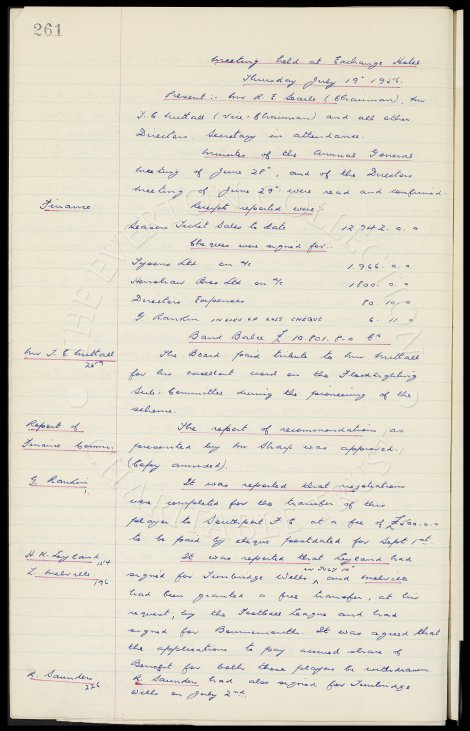 261
Meeting held at Exchange Hotel
Thursday July 19th 1956.
Present:- Mr R. E. Searle (Chairman), Mr
T. C. Nuttall (Vice-Chairman) and all other
Directors. Secretary in attendance.
Minutes of the Annual General
Meeting of June 28th, and of the Directors
Meeting of June 29th were read and confirmed.
Finance Receipts reported were:-
Season Ticket Sales to date 12,742. 0. 0
Cheques were signed for:-
Tysons Ltd on a/c 1.966. 0. 0
Henshaw Bros Ltd on a/c 1800. 0. 0
Directors Expenses 80. 10. 0
G. Rankin IN LIEU OF LOST CHEQUE 6. 11. 0
Bank Balce £ 10.801. 8. 0
Mr T. C. Nuttall The Board paid tribute to Mr Nuttall
for his excellent work on the Floodlighting
Sub-Committee during the pioneering of the
scheme.
Report of The report of recommendations as
Finance Comm. presented by Mr Sharp was approved.
(Copy annexed).
G. Rankin It was reported that negotiations
were completed for the transfer of this
player to Southport F.C. at a fee of £500.0.0
to be paid by cheque postdated for Sept 1st.
H. K. Leyland 154 It was reported that Leyland had
L. Melville 196 signed for Tunbridge Wells ON JULY 10th and Melville
had been granted a free transfer, at his
request, by the Football League and had
signed for Bournemouth. It was agreed that
the applications to pay accrued share of
Benefit for both these players be withdrawn.
R. Saunders 226 R. Saunders had also signed for Tunbridge
Wells on July 2nd.